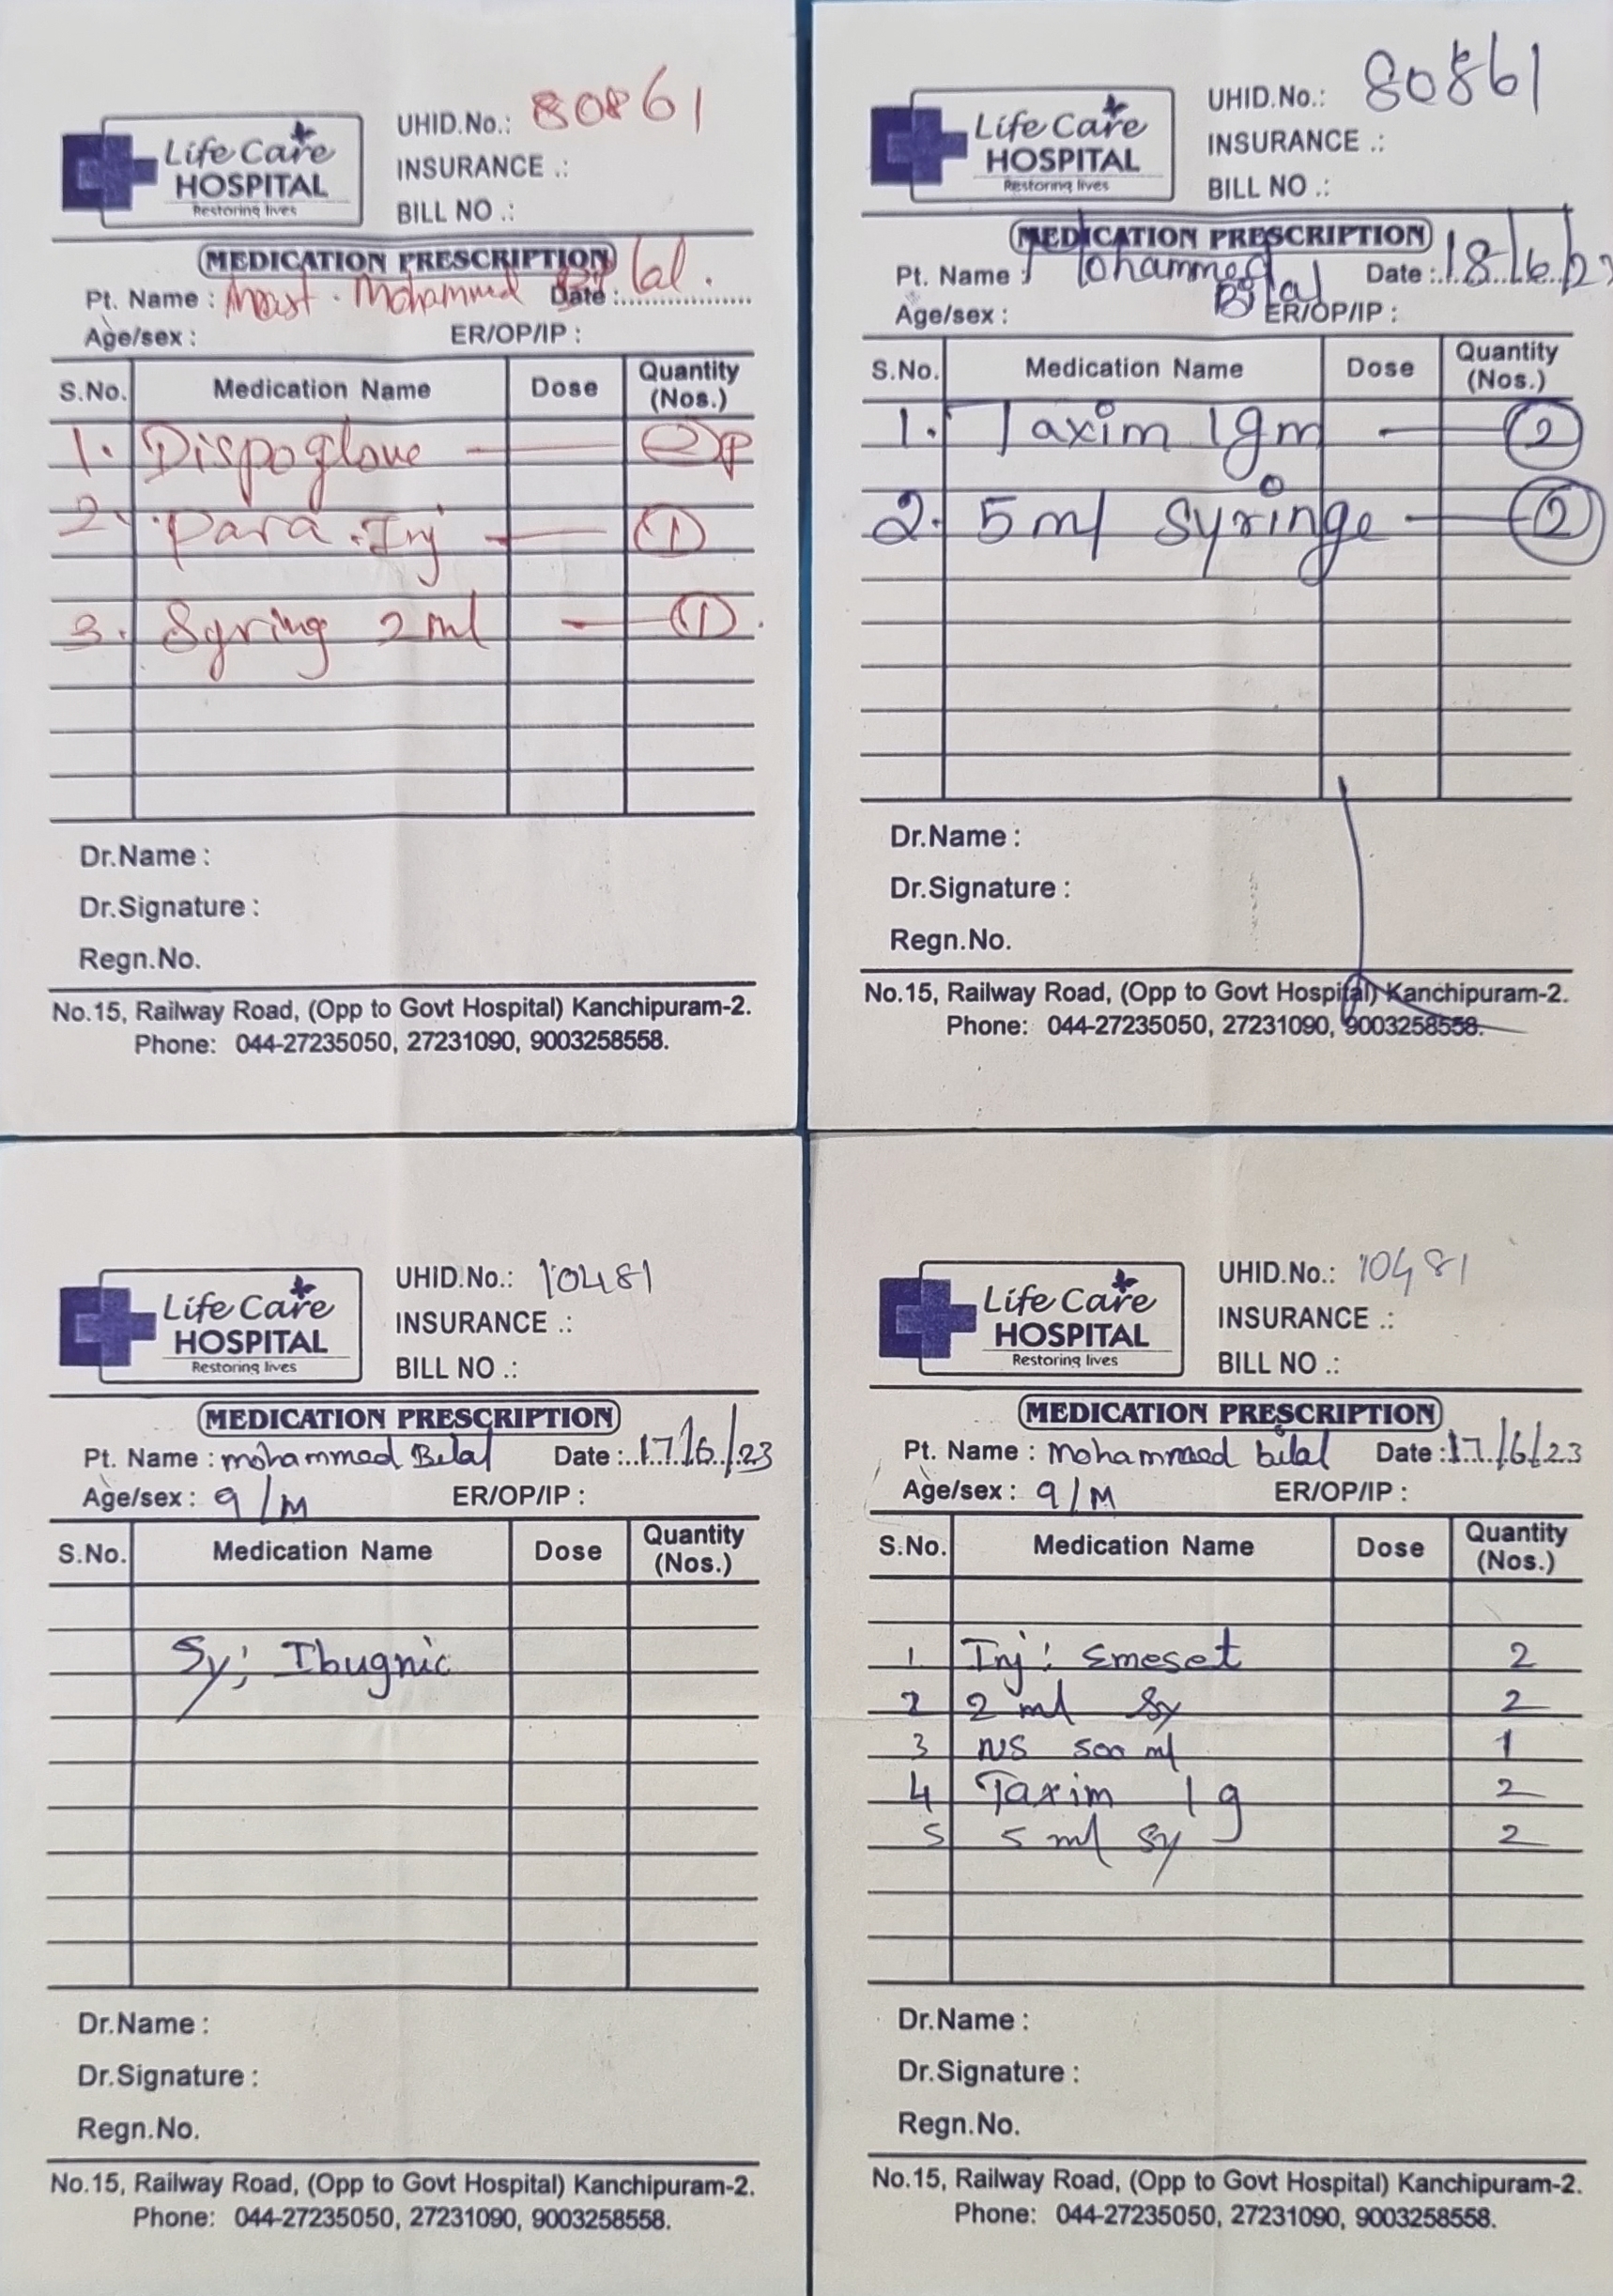 Life Care
HOSPITAL
Restoring lives
UHID.No.: 80861
INSURANCE .:
BILL NO .:
MEDICATION PRESCRIPTION
Pt. Name : Mohammed Bilal. Date :
Age/sex : ER/OP/IP :
S.No. Medication Name Dose Quantity (Nos.)
1. Dispoglove — 2P
2. Para. Inj — 1
3. Syring 2 ml — 1.
Dr.Name :
Dr.Signature :
Regn.No.
No.15, Railway Road, (Opp to Govt Hospital) Kanchipuram-2.
Phone: 044-27235050, 27231090, 9003258558.
Life Care
HOSPITAL
Restoring lives
UHID.No.: 80861
INSURANCE .:
BILL NO .:
MEDICATION PRESCRIPTION
Pt. Name : Mohammed Date : 18/6/23
Bilal
Age/sex : ER/OP/IP :
S.No. Medication Name Dose Quantity (Nos.)
1. Taxim 1gm — 2
2. 5 ml Syringe — 2
Dr.Name :
Dr.Signature :
Regn.No.
No.15, Railway Road, (Opp to Govt Hospital) Kanchipuram-2.
Phone: 044-27235050, 27231090, 9003258558.
Life Care
HOSPITAL
Restoring lives
UHID.No.: 10481
INSURANCE .:
BILL NO .:
MEDICATION PRESCRIPTION
Pt. Name : mohammed Bilal Date : 17/6/23
Age/sex : 9/M ER/OP/IP :
S.No. Medication Name Dose Quantity (Nos.)
Sy; Ibugnic
Dr.Name :
Dr.Signature :
Regn.No.
No.15, Railway Road, (Opp to Govt Hospital) Kanchipuram-2.
Phone: 044-27235050, 27231090, 9003258558.
Life Care
HOSPITAL
Restoring lives
UHID.No.: 10481
INSURANCE .:
BILL NO .:
MEDICATION PRESCRIPTION
Pt. Name : Mohammed bilal Date : 17/6/23
Age/sex : 9/M ER/OP/IP :
S.No. Medication Name Dose Quantity (Nos.)
1 Inj: Emeset 2
2 2 ml Sy 2
3 NS 500 ml 1
4 Taxim 1g 2
5 5 ml Sy 2
Dr.Name :
Dr.Signature :
Regn.No.
No.15, Railway Road, (Opp to Govt Hospital) Kanchipuram-2.
Phone: 044-27235050, 27231090, 9003258558.